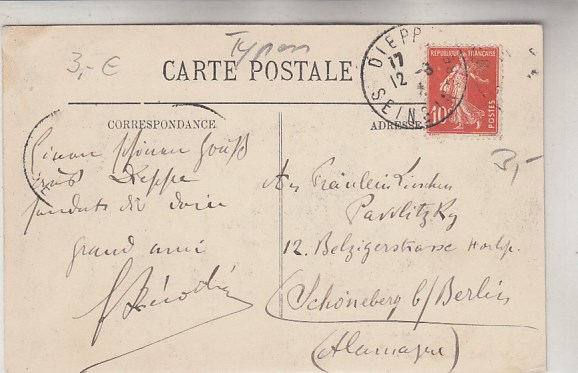 Typen
3,- €
CARTE POSTALE
CORRESPONDANCE
ADRESSE
DIEPP
17
12
SEINE
REPUBLIQUE FRANÇAISE
10
POSTES
3,-
Einen schönen Gruß
aus Dieppe
sendet dir dein
grand ami
An Fräulein
Pawlitzky
12. Belzigerstrasse Hochp.
Schöneberg b/Berlin
(Alemagne)